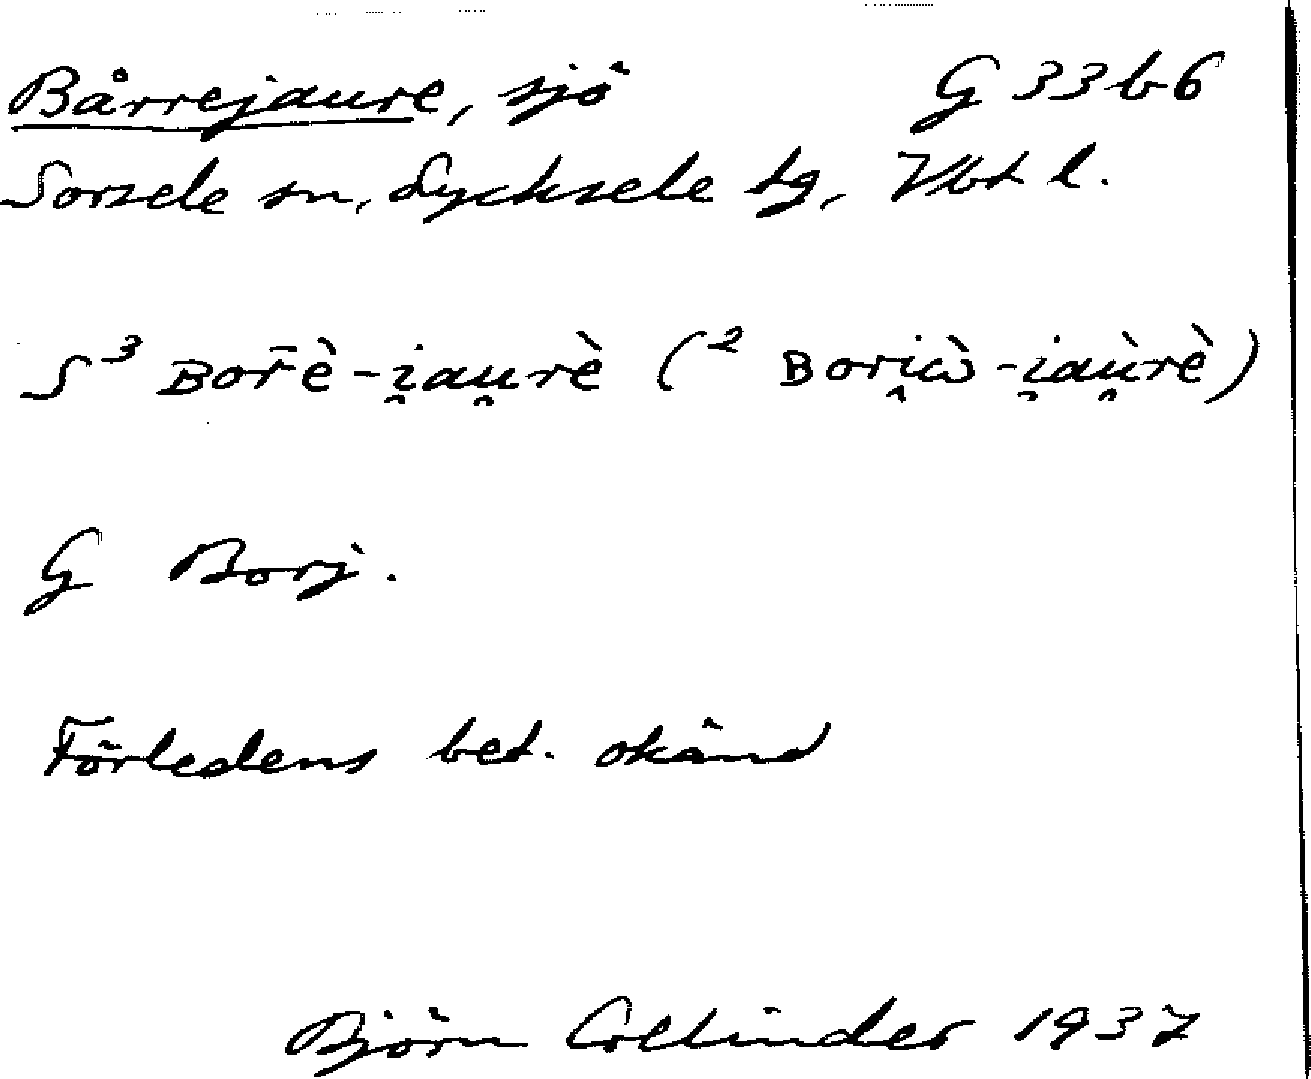 Bårrejaure, sjö G 33 b 6
Sorsele sn, Lycksele tg, Vbt l.
S³ ʙor̄è-i̯au̯rè (² ʙori̯ὼ-i̯aù̯rè)
G Borj.
Förledens bet. okänd
Björn Collinder 1937